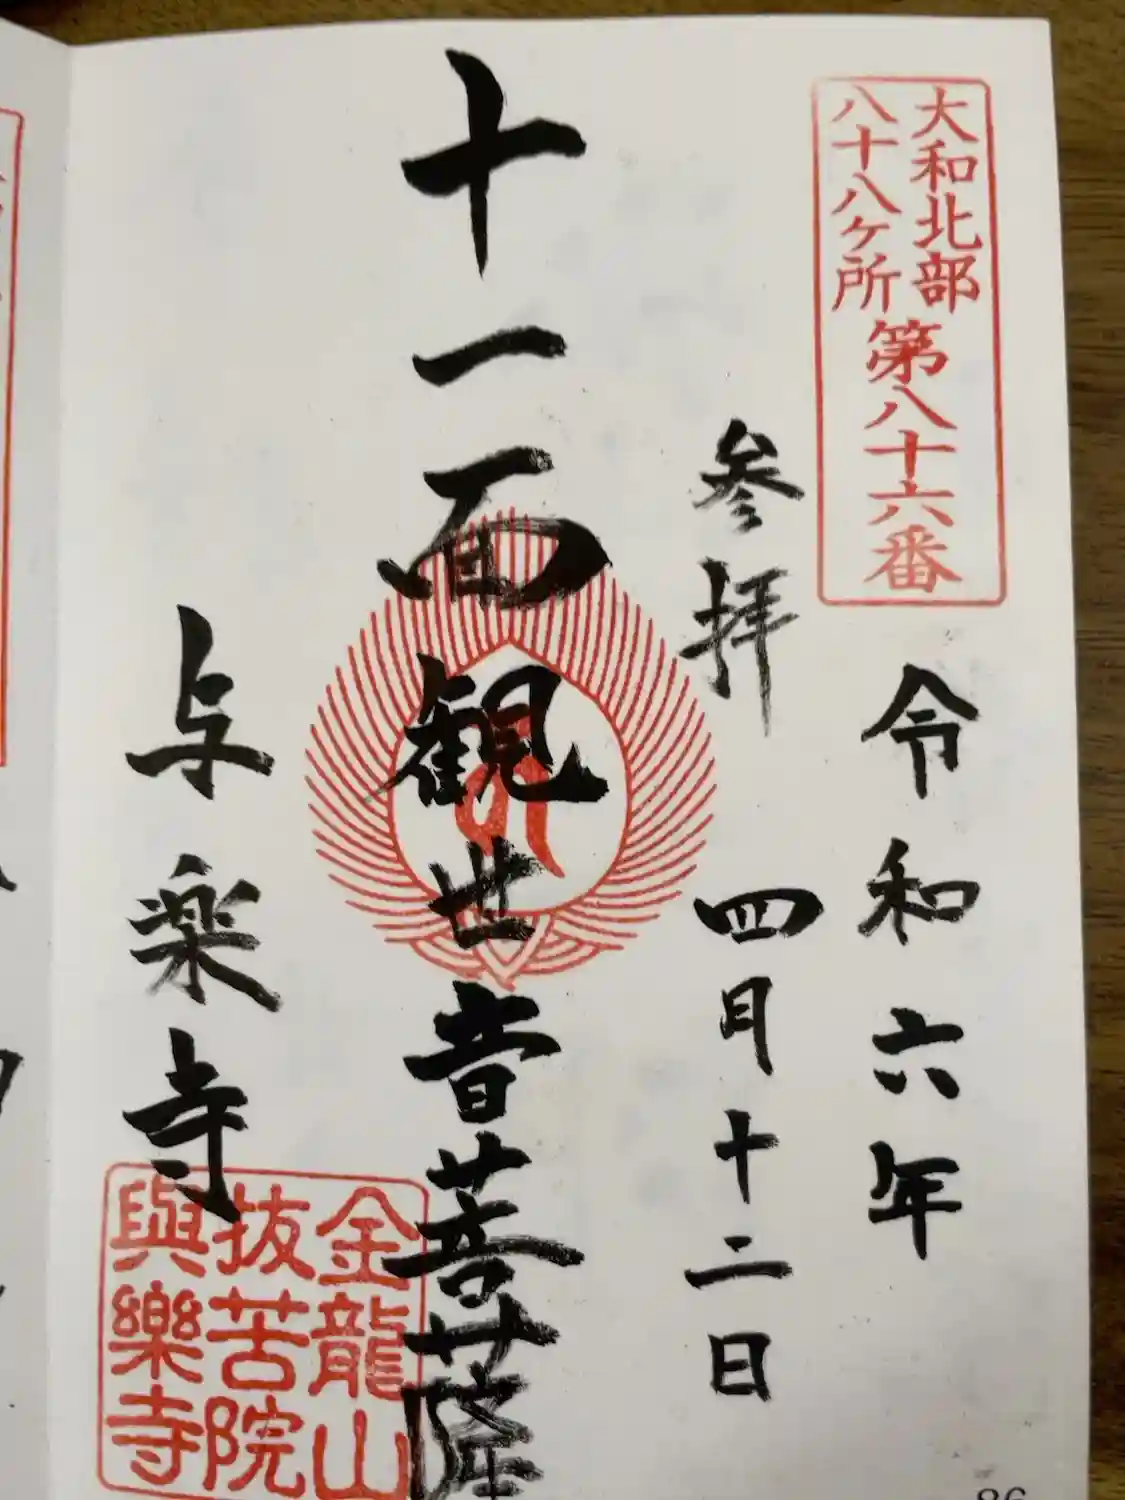 大和北部
八十八ケ所
第八十六番
令和六年
参拝 四月十二日
十一面観世音菩薩
与楽寺
金龍山
抜苦院
與樂寺
86